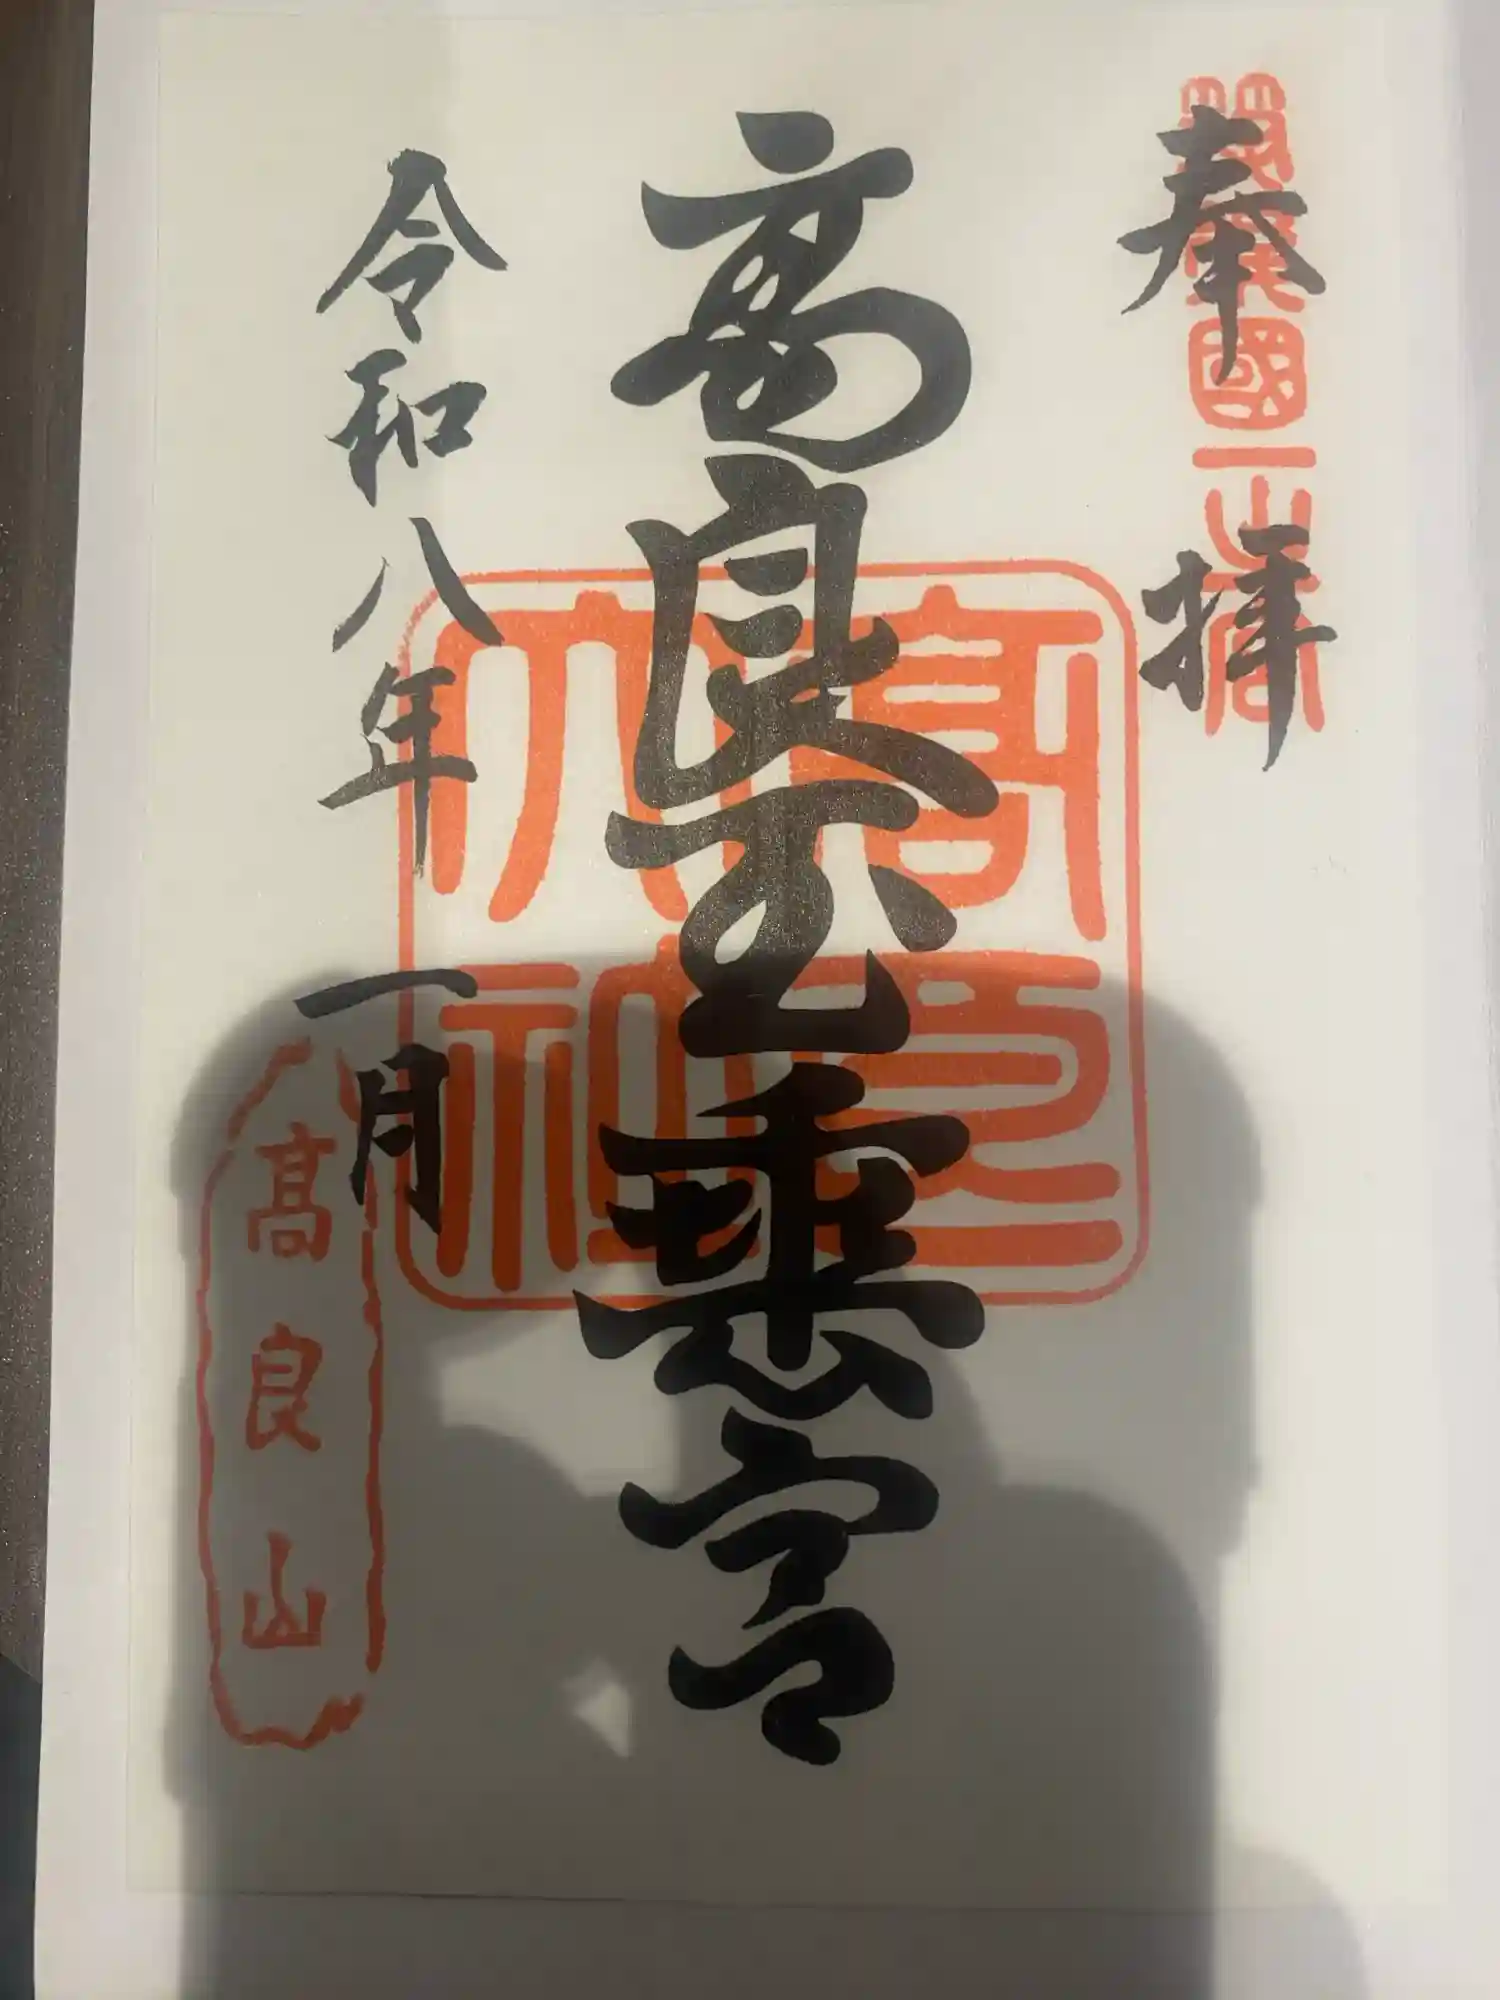 奉拝
筑後国一之宮
高良玉垂宮
高良大社
令和八年一月
高良山